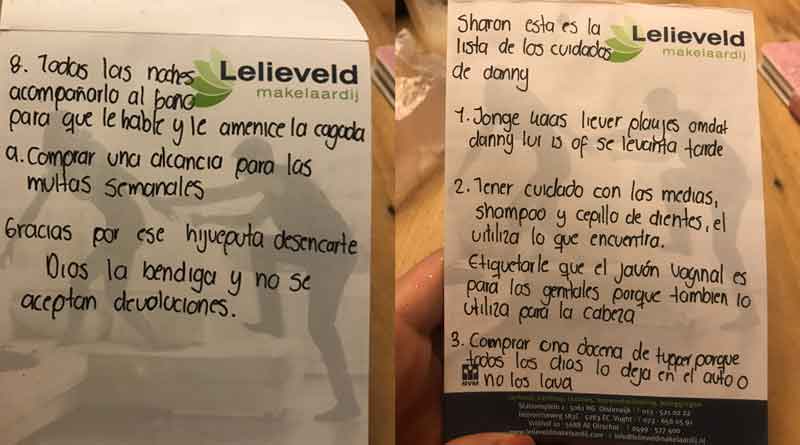 8. Todas las noches
acompañarlo al baño
para que le hable y le amenice la cagada
9. Comprar una alcancia para las
multas semanales
Gracias por ese hijueputa desencarte
Dios la bendiga y no se
aceptan devoluciones.
Lelieveld
makelaardij
Sharon esta es la
lista de los cuidados
de danny
Lelieveld
makelaardij
1. Jonge kaas liever plakjes omdat
danny lui is of se levanta tarde
2. Tener cuidado con las medias,
shampoo y cepillo de dientes, el
utiliza lo que encuentra.
Etiquetarle que el javón vaginal es
para los genitales porque tambien lo
utiliza para la cabeza
3. Comprar una docena de tupper porque
todos los dias lo deja en el auto o
no los lava
NVM
Stationsplein 2 · 5061 HG Oisterwijk T 013 - 521 02 22
5263 EC Vught T 073 - 658 05 91
5688 AE Oirschot T 0499 - 577 400
www.lelieveldmakelaardij.com info@lelieveldmakelaardij.nl